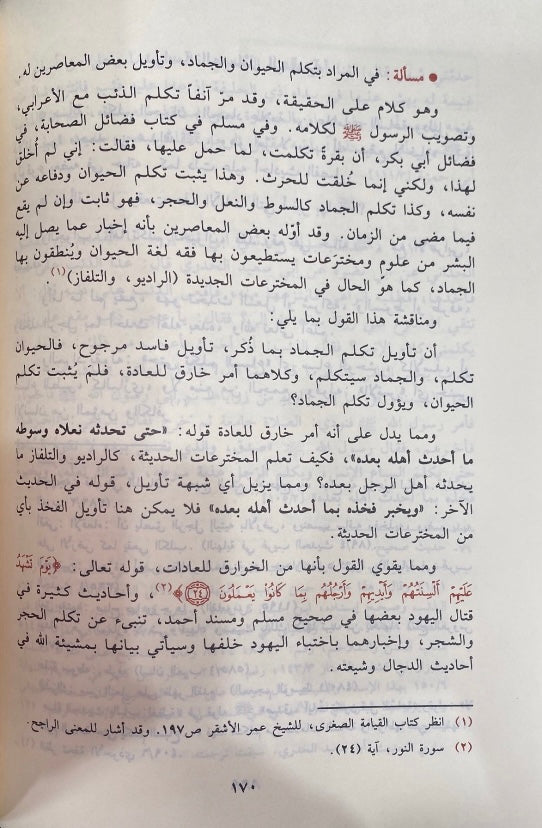 ● مسألة: في المراد بتكلم الحيوان والجماد، وتأويل بعض المعاصرين له.
وهو كلام على الحقيقة، وقد مرّ آنفاً تكلم الذئب مع الأعرابي،
وتصويب الرسول ﷺ لكلامه. وفي مسلم في كتاب فضائل الصحابة، في
فضائل أبي بكر، أن بقرةً تكلمت، لما حمل عليها، فقالت: إني لم أُخلق
لهذا، ولكني إنما خُلقت للحرث. وهذا يثبت تكلم الحيوان ودفاعه عن
نفسه، وكذا تكلم الجماد كالسوط والنعل والحجر، فهو ثابت وإن لم يقع
فيما مضى من الزمان. وقد أوّله بعض المعاصرين بأنه إخبار عما يصل إليه
البشر من علوم ومخترعات يستطيعون بها فقه لغة الحيوان ويُنطقون بها
الجماد، كما هو الحال في المخترعات الجديدة (الراديو، والتلفاز)(١).
ومناقشة هذا القول بما يلي:
أن تأويل تكلم الجماد بما ذُكر، تأويل فاسد مرجوح، فالحيوان
تكلم، والجماد سيتكلم، وكلاهما أمر خارق للعادة، فلمَ يُثبت تكلم
الحيوان، ويؤول تكلم الجماد؟
ومما يدل على أنه أمر خارق للعادة قوله: «حتى تحدثه نعلاه وسوطه
ما أحدث أهله بعده»، فكيف تعلم المخترعات الحديثة، كالراديو والتلفاز ما
يحدثه أهل الرجل بعده؟ ومما يزيل أي شبهة تأويل، قوله في الحديث
الآخر: «ويخبر فخذه بما أحدث أهله بعده» فلا يمكن هنا تأويل الفخذ بأي
من المخترعات الحديثة.
ومما يقوي القول بأنها من الخوارق للعادات، قوله تعالى: ﴿يَوْمَ تَشْهَدُ
عَلَيْهِمْ أَلْسِنَتُهُمْ وَأَيْدِيهِمْ وَأَرْجُلُهُم بِمَا كَانُوا يَعْمَلُونَ ﴿٢٤﴾﴾(٢)، وأحاديث كثيرة في
قتال اليهود بعضها في صحيح مسلم ومسند أحمد، تنبىء عن تكلم الحجر
والشجر، وإخبارهما باختباء اليهود خلفها وسيأتي بيانها بمشيئة الله في
أحاديث الدجال وشيعته.
(١) انظر كتاب القيامة الصغرى، للشيخ عمر الأشقر ص١٩٧. وقد أشار للمعنى الراجح.
(٢) سورة النور، آية (٢٤).
١٧٠